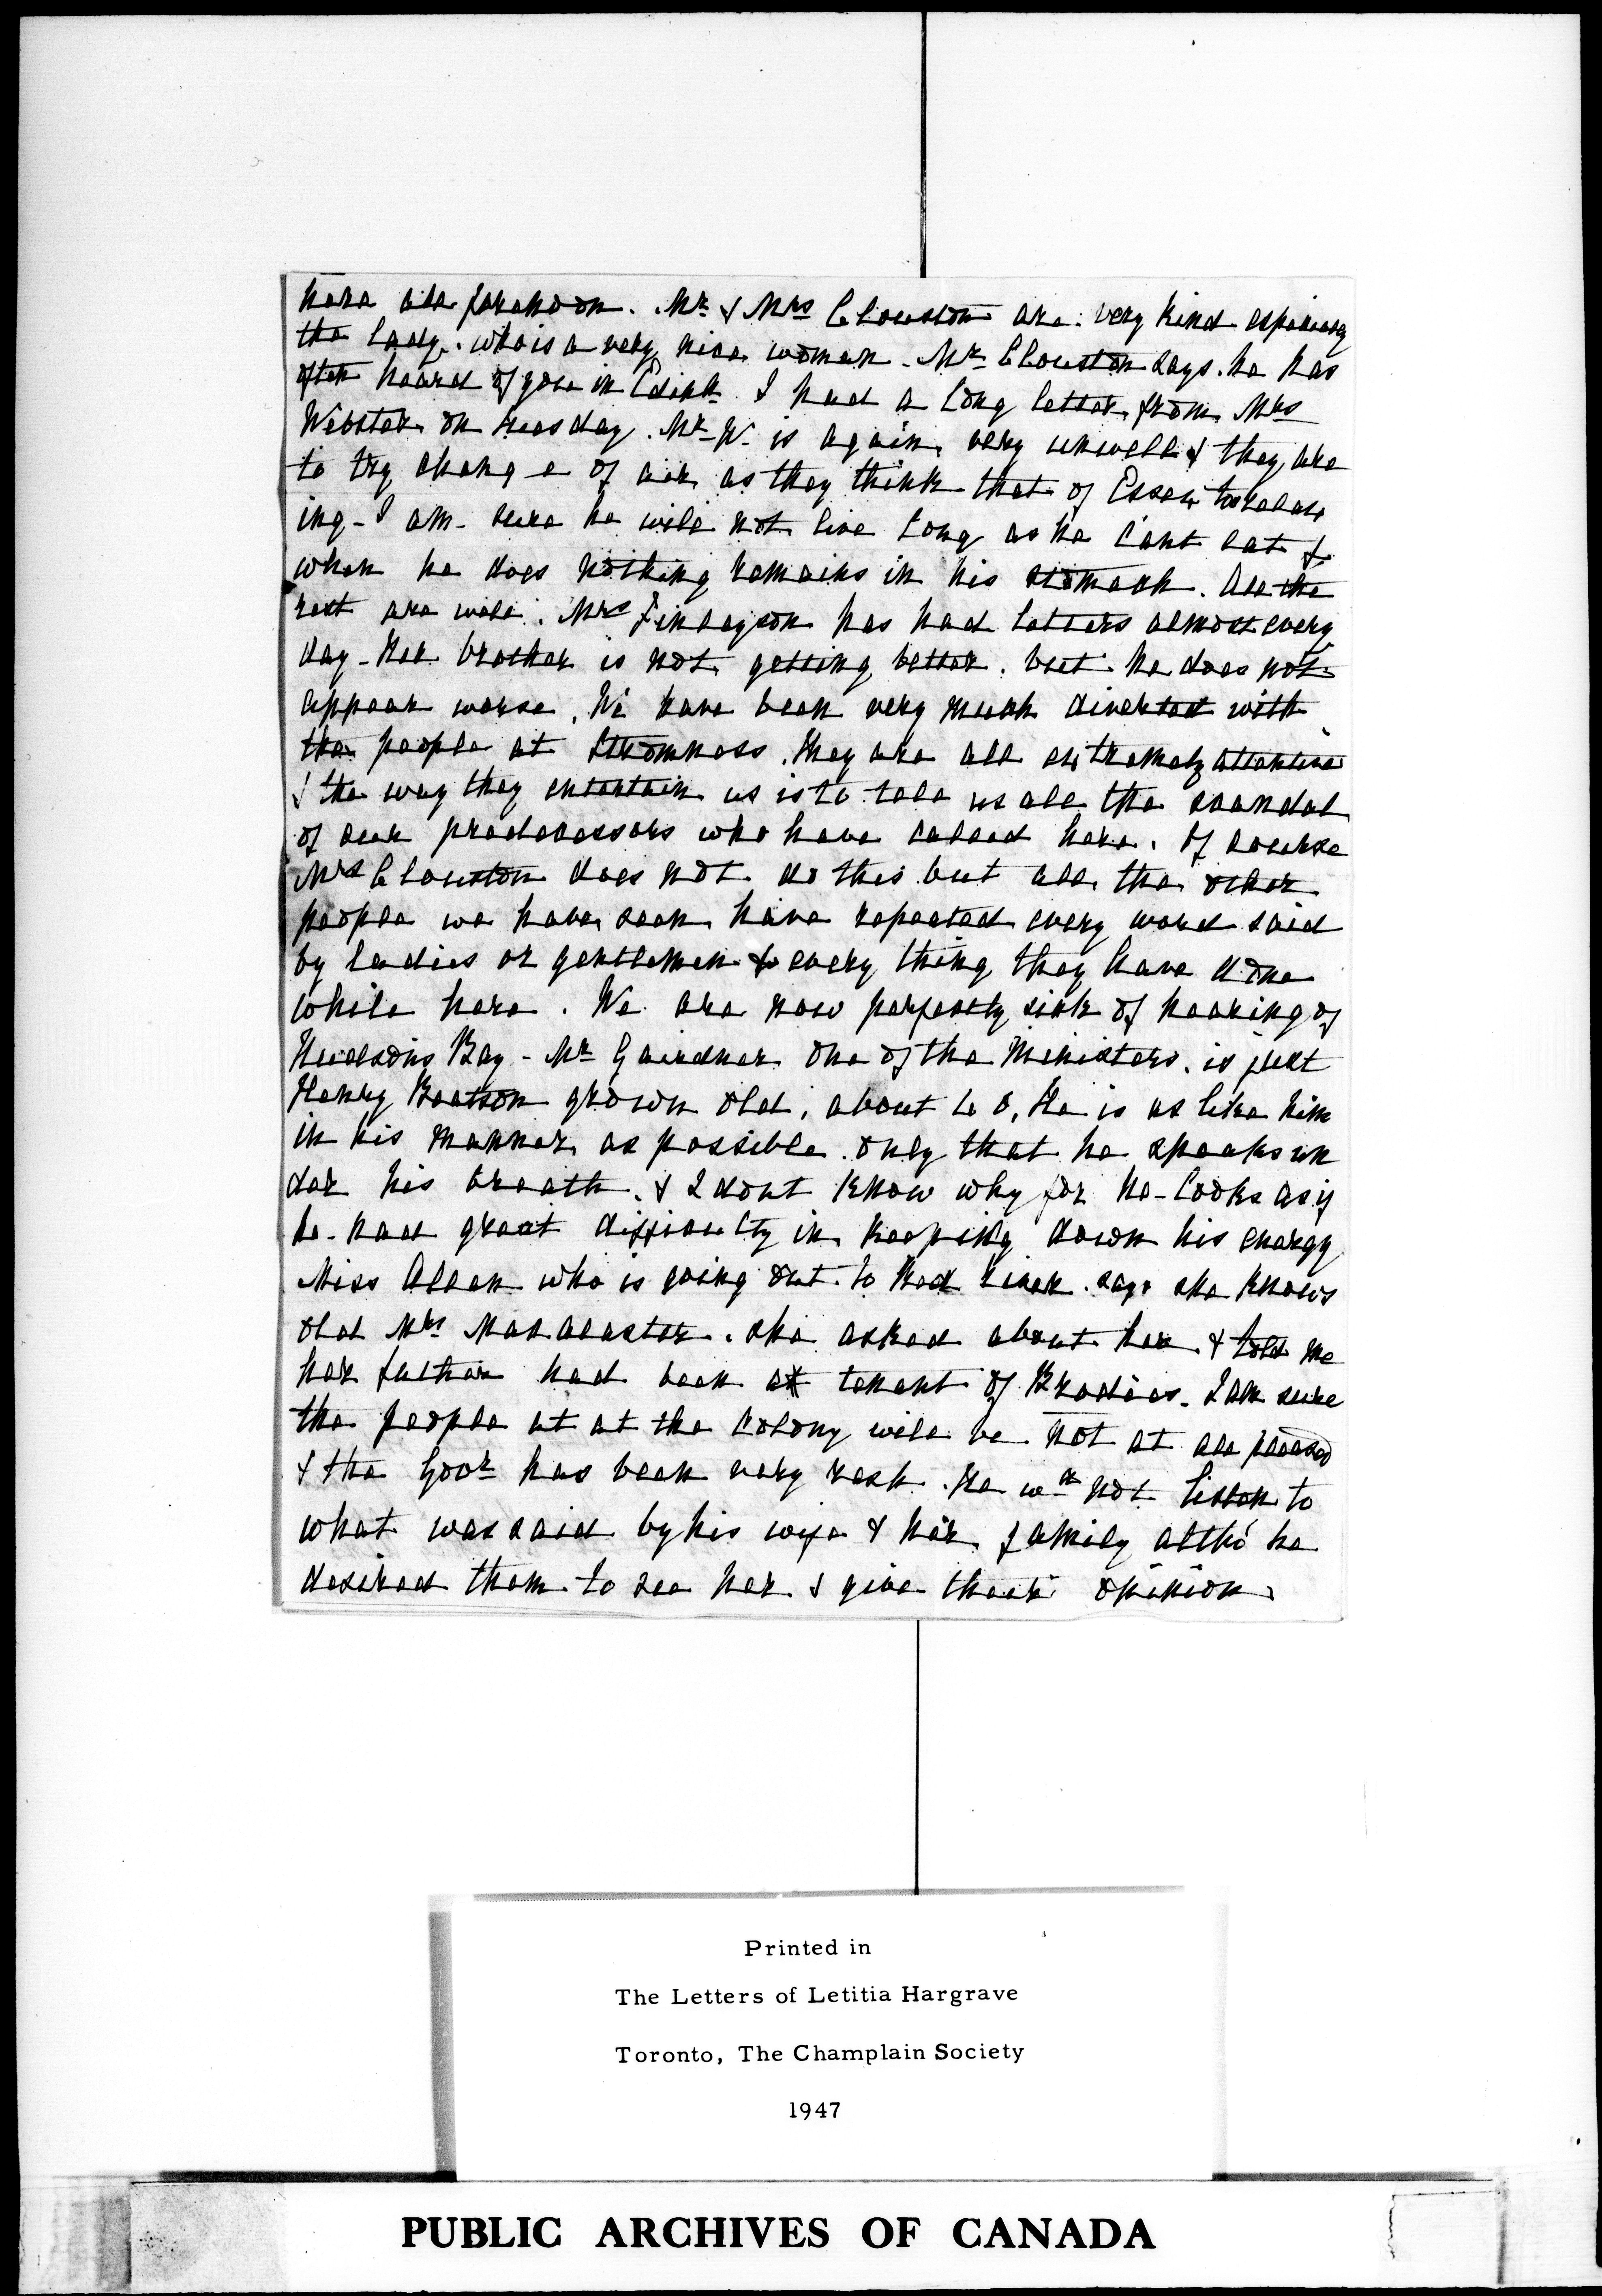 here all forenoon. Mr & Mrs Clouston are very kind especially
the lady. who is a very nice woman. Mr Clouston says he has
often heard of you in Edinr. I had a long letter from Mrs
Webster on Tuesday. Mr W. is again very unwell & they are
to try change of air as they think that of Essex too relax
ing - I am sure he will not live long as he cant eat &
when he does nothing remains in his stomach. All the
rest are well. Mrs Finlayson has had letters almost every
day - Her brother is not getting better. but he does not
appear worse. We have been very much diverted with
the people at Stromness. They are all extremely attentive
& the way they entertain us is to tell us all the scandal
of our predecessors who have called here. Of course
Mrs Clouston does not do this but all the other
people we have seen have repeated every word said
by ladies or gentlemen & every thing they have done
while here. We are now perfectly sick of hearing of
Hudsons Bay - Mr Gairdner one of the Ministers. is just
Henry Beatson grown old, about 60. He is as like him
in his manner as possible. only that he speaks un
der his breath. & I dont know why for he looks as if
he had great difficulty in keeping down his energy
Miss Allan who is going out to Red River. says she knows
old Mrs MacAlaster. she asked about her & told me
her father had been a tenant of Brodies. I am sure
the people at at the Colony will be not at all pleased
& the Govr has been very rash. He wd not listen to
what was said by his wife & her family altho' he
desired them to see her & give their opinion
Printed in
The Letters of Letitia Hargrave
Toronto, The Champlain Society
1947
PUBLIC ARCHIVES OF CANADA